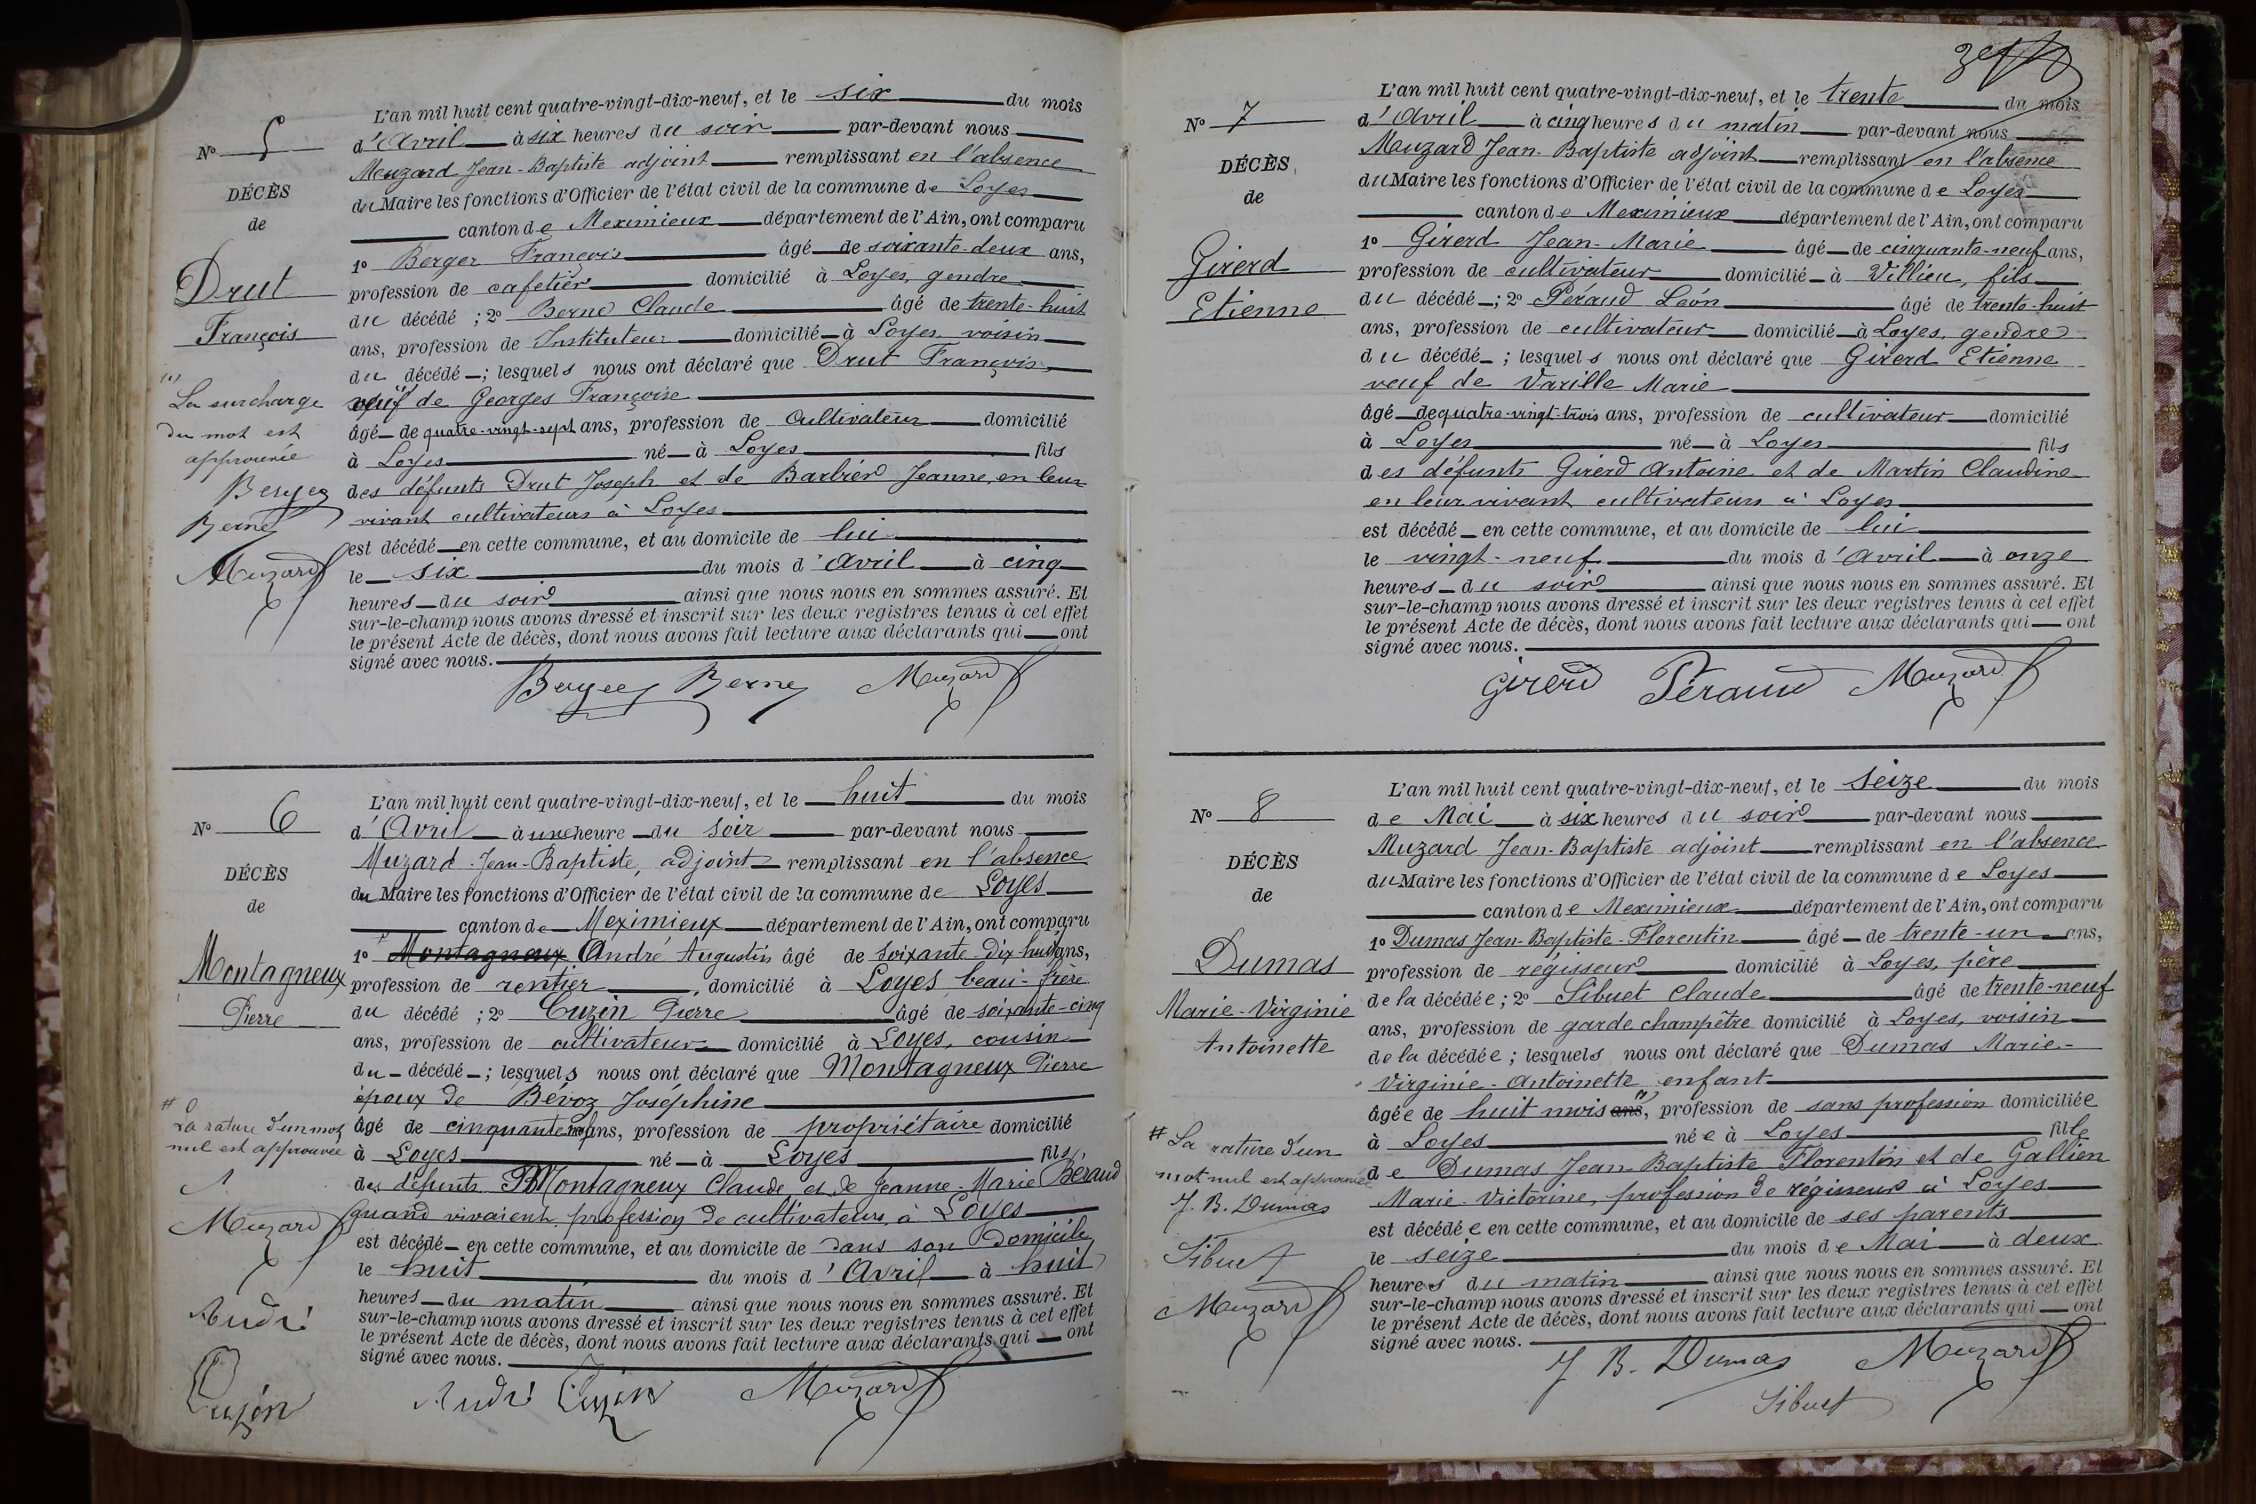 N° 5
DÉCÈS
de
Drut
François
(1)
La surcharge
du mot est
approuvée
Berger
Berne
Muzard
L'an mil huit cent quatre-vingt-dix-neuf, et le six du mois
d'Avril à six heures du soir par-devant nous
Muzard Jean-Baptiste adjoint remplissant en l'absence
du Maire les fonctions d'Officier de l'état civil de la commune de Loyes
canton de Meximieux département de l'Ain, ont comparu
1° Berger François âgé de soixante-deux ans,
profession de cafetier domicilié à Loyes, gendre
du décédé ; 2° Berne Claude âgé de trente-huit
ans, profession de Instituteur domicilié à Loyes voisin
du décédé ; lesquels nous ont déclaré que Drut François,
veuf de Georges Françoise
âgé de quatre-vingt-sept ans, profession de Cultivateur domicilié
à Loyes né à Loyes fils
des défunts Drut Joseph et de Barbier Jeanne, en leur
vivant cultivateurs à Loyes
est décédé en cette commune, et au domicile de lui
le six du mois d'Avril à cinq
heures du soir ainsi que nous nous en sommes assuré. Et
sur-le-champ nous avons dressé et inscrit sur les deux registres tenus à cet effet
le présent Acte de décès, dont nous avons fait lecture aux déclarants qui ont
signé avec nous.
Berger Berne Muzard
N° 6
DÉCÈS
de
Montagneux
Pierre
#
La rature d'un mot
nul est approuvée
Muzard
André
Cuzin
L'an mil huit cent quatre-vingt-dix-neuf, et le huit du mois
d'Avril à une heure du soir par-devant nous
Muzard Jean-Baptiste, adjoint remplissant en l'absence
du Maire les fonctions d'Officier de l'état civil de la commune de Loyes
canton de Meximieux département de l'Ain, ont comparu
1° Montagneux André Augustin âgé de soixante-dix huit ans,
profession de rentier, domicilié à Loyes beau-frère
du décédé ; 2° Cuzin Pierre âgé de soixante-cinq
ans, profession de cultivateur domicilié à Loyes, cousin
du décédé ; lesquels nous ont déclaré que Montagneux Pierre
époux de Bévoz Joséphine
âgé de cinquante neuf ans, profession de propriétaire domicilié
à Loyes né à Loyes fils
des défunts Montagneux Claude et de Jeanne-Marie Béraud
quand vivaient, profession de cultivateurs, à Loyes
est décédé en cette commune, et au domicile de dans son domicile
le huit du mois d'Avril à huit
heures du matin ainsi que nous nous en sommes assuré. Et
sur-le-champ nous avons dressé et inscrit sur les deux registres tenus à cet effet
le présent Acte de décès, dont nous avons fait lecture aux déclarants qui ont
signé avec nous.
André Cuzin Muzard
N° 7
DÉCÈS
de
Girerd
Etienne
L'an mil huit cent quatre-vingt-dix-neuf, et le trente du mois
d'Avril à cinq heures du matin par-devant nous
Muzard Jean-Baptiste adjoint remplissant en l'absence
du Maire les fonctions d'Officier de l'état civil de la commune de Loyes
canton de Meximieux département de l'Ain, ont comparu
1° Girerd Jean-Marie âgé de cinquante-neuf ans,
profession de cultivateur domicilié à Villieu, fils
du décédé ; 2° Péraud Léon âgé de trente-huit
ans, profession de cultivateur domicilié à Loyes, gendre
du décédé ; lesquels nous ont déclaré que Girerd Etienne
veuf de Varille Marie
âgé de quatre-vingt-trois ans, profession de cultivateur domicilié
à Loyes né à Loyes fils
des défunts Girerd Antoine et de Martin Claudine
en leur vivant cultivateurs à Loyes
est décédé en cette commune, et au domicile de lui
le vingt-neuf du mois d'Avril à onze
heures du soir ainsi que nous nous en sommes assuré. Et
sur-le-champ nous avons dressé et inscrit sur les deux registres tenus à cet effet
le présent Acte de décès, dont nous avons fait lecture aux déclarants qui ont
signé avec nous.
Girerd Péraud Muzard
N° 8
DÉCÈS
de
Dumas
Marie-Virginie
Antoinette
# La rature d'un
mot nul est approuvée
J. B. Dumas
Sibuet
Muzard
L'an mil huit cent quatre-vingt-dix-neuf, et le seize du mois
de Mai à six heures du soir par-devant nous
Muzard Jean-Baptiste adjoint remplissant en l'absence
du Maire les fonctions d'Officier de l'état civil de la commune de Loyes
canton de Meximieux département de l'Ain, ont comparu
1° Dumas Jean-Baptiste-Florentin âgé de trente-un ans,
profession de régisseur domicilié à Loyes, père
de la décédée ; 2° Sibuet Claude âgé de trente-neuf
ans, profession de garde champêtre domicilié à Loyes, voisin
de la décédée ; lesquels nous ont déclaré que Dumas Marie-
Virginie-Antoinette, enfant
âgée de huit mois ans, profession de sans profession domiciliée
à Loyes née à Loyes fille
de Dumas Jean-Baptiste Florentin et de Gallien
Marie-Victorine, profession de régisseurs à Loyes
est décédée en cette commune, et au domicile de ses parents
le seize du mois de Mai à deux
heures du matin ainsi que nous nous en sommes assuré. Et
sur-le-champ nous avons dressé et inscrit sur les deux registres tenus à cet effet
le présent Acte de décès, dont nous avons fait lecture aux déclarants qui ont
signé avec nous.
J. B. Dumas Muzard
Sibuet